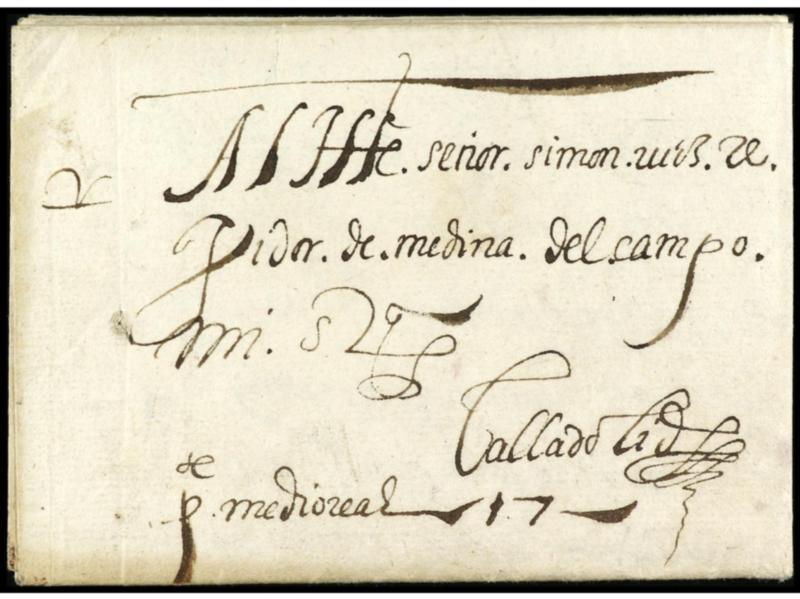 Al Ille. señor. simon. ruiz. Re
gidor. de. medina. del campo.
mi. sr
Valladolid
de
p. medio real 17